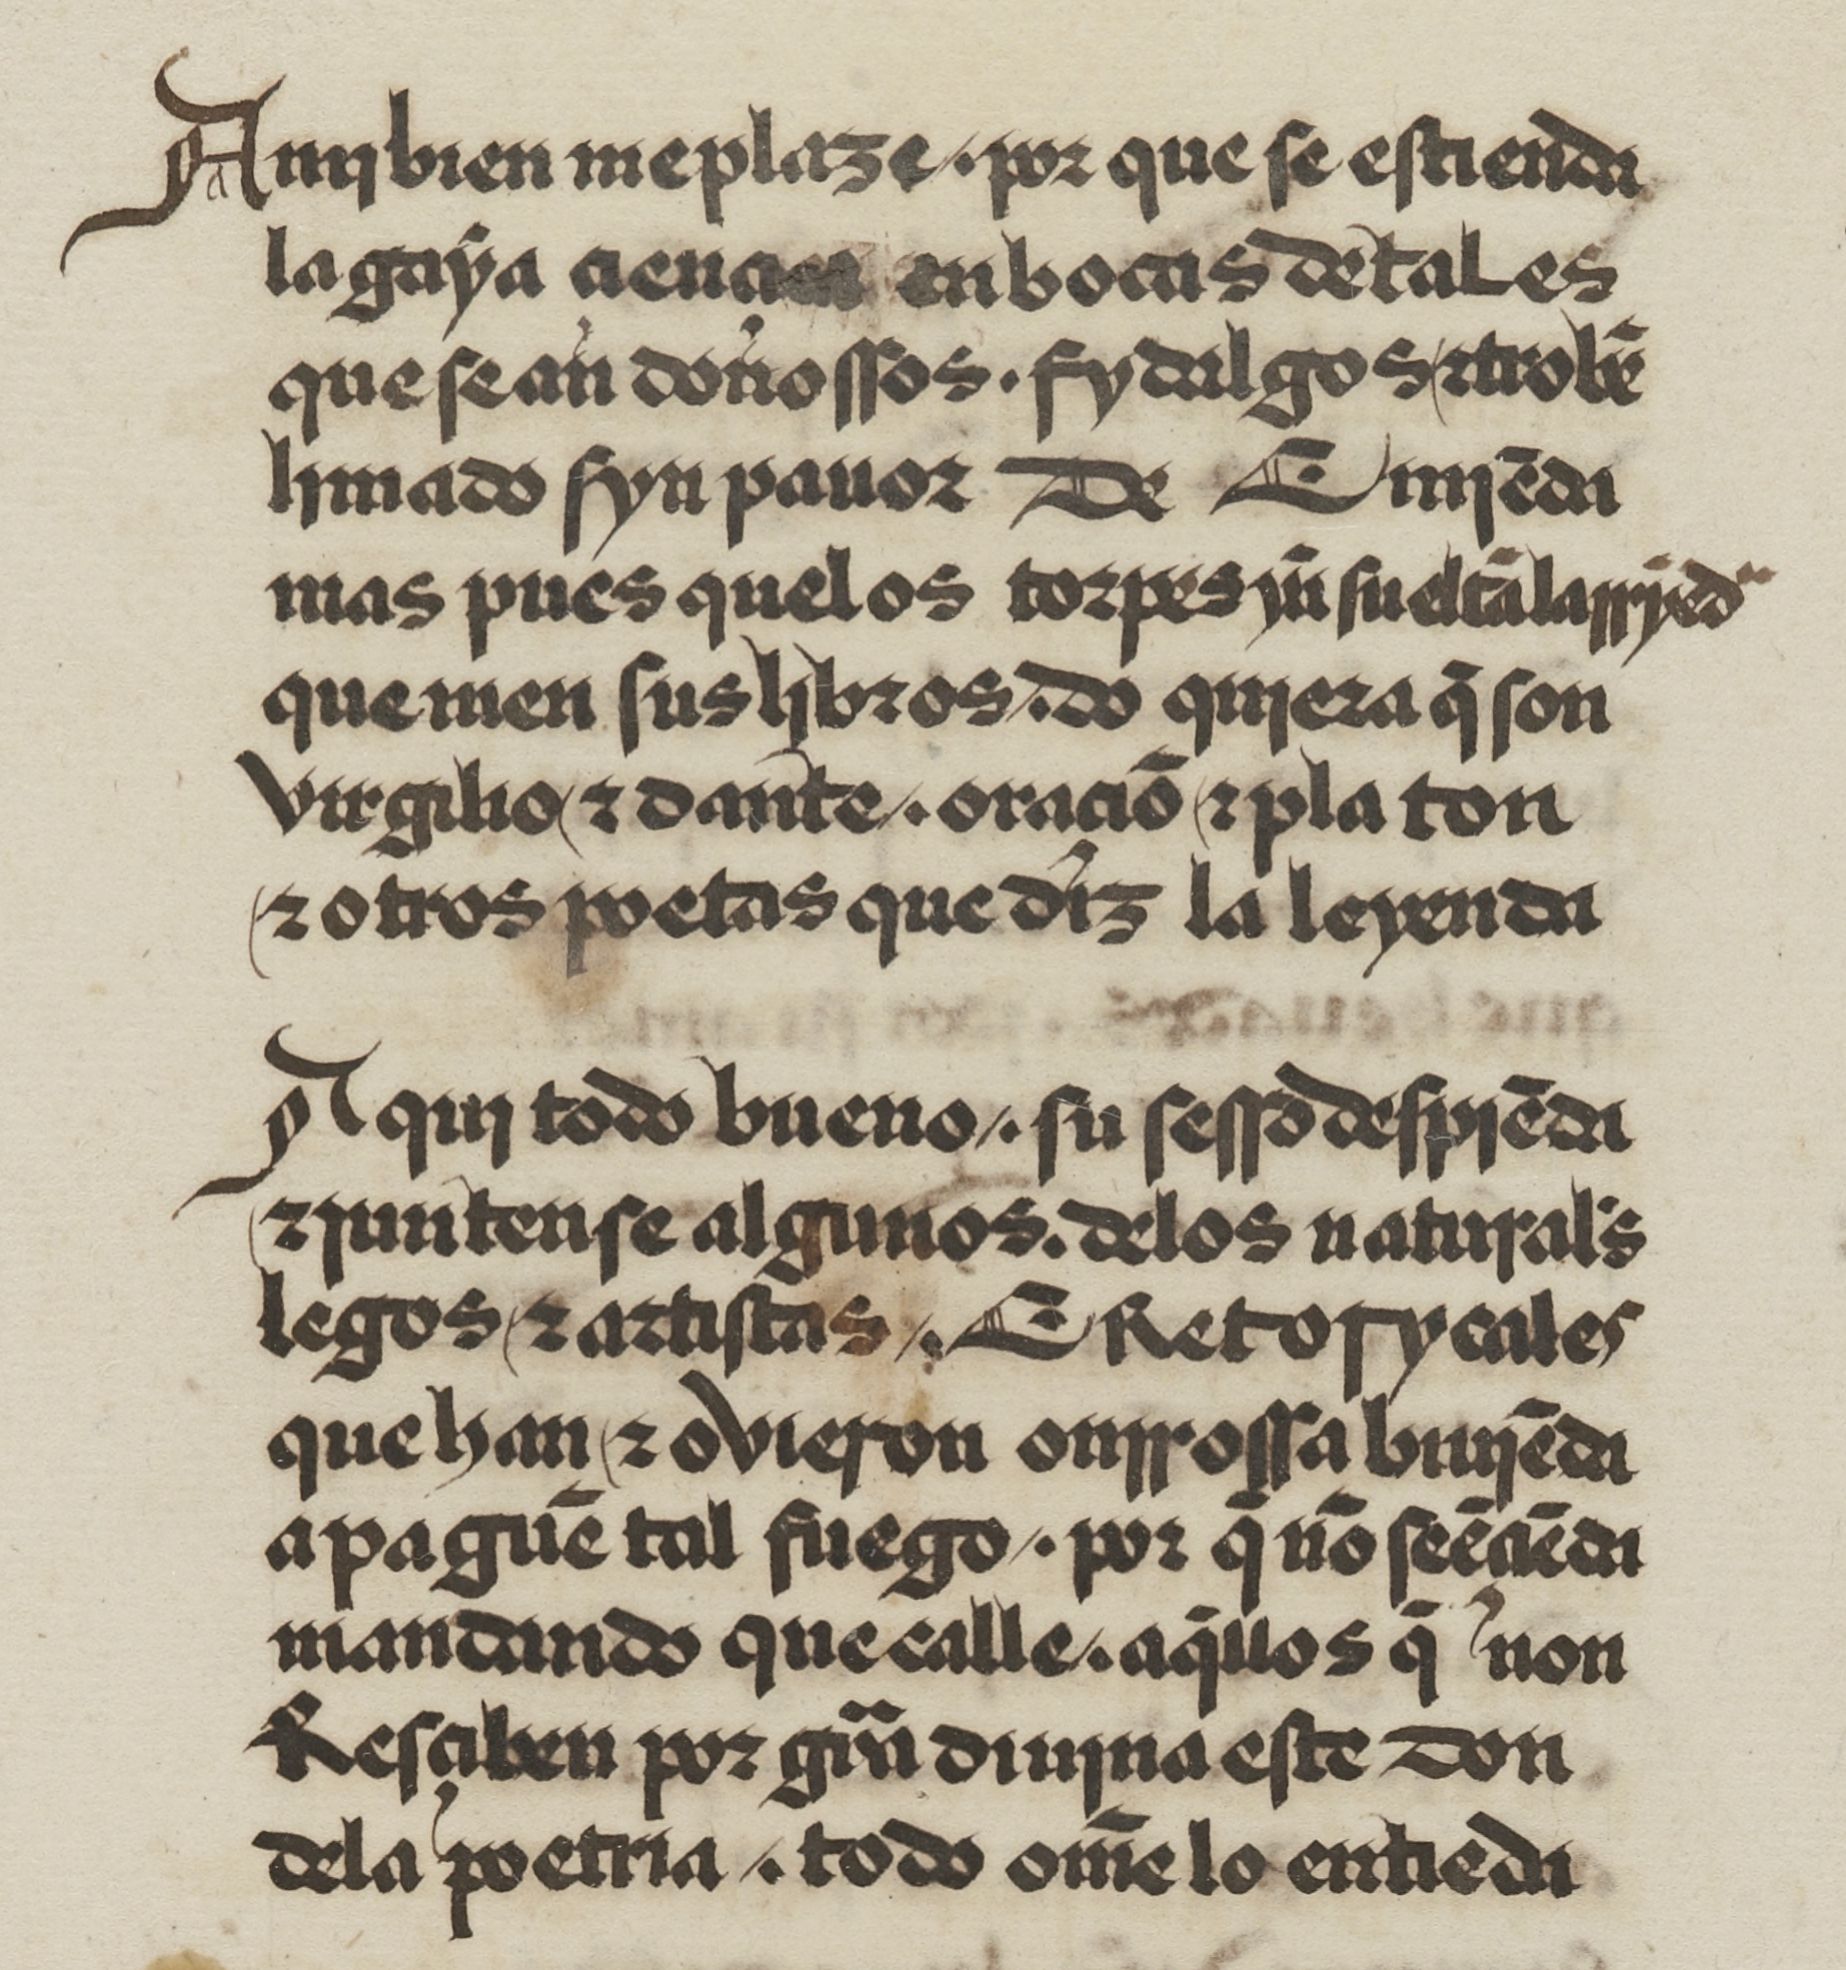 A mj bien me plaze / . por que se estienda
la gaya ciencia en bocas de tales
que sean donossos . fydalgos ⁊ trobẽ
limado syn pauor De Emjẽda
mas pues que los torpes yã sueltã la rryẽda
quemen sus libros / . do quiera q̃ son
virgilio ⁊ dante / . oraciõ ⁊ platon
⁊ otros poetas que diz la leyenda
Aquj todo bueno / . su sesso despiẽda
⁊ juntense algunos . de los naturales
legos ⁊ artistas / . E Retorycales
que han ⁊ ovieron onrrossa biujẽda
apaguẽ tal fuego / . por q̃ nõ se ẽciẽda
mandando que calle / . aq̃llos q̃ non
Resciben por grã diujna este don
de la poetria / . todo om̃e lo entieda